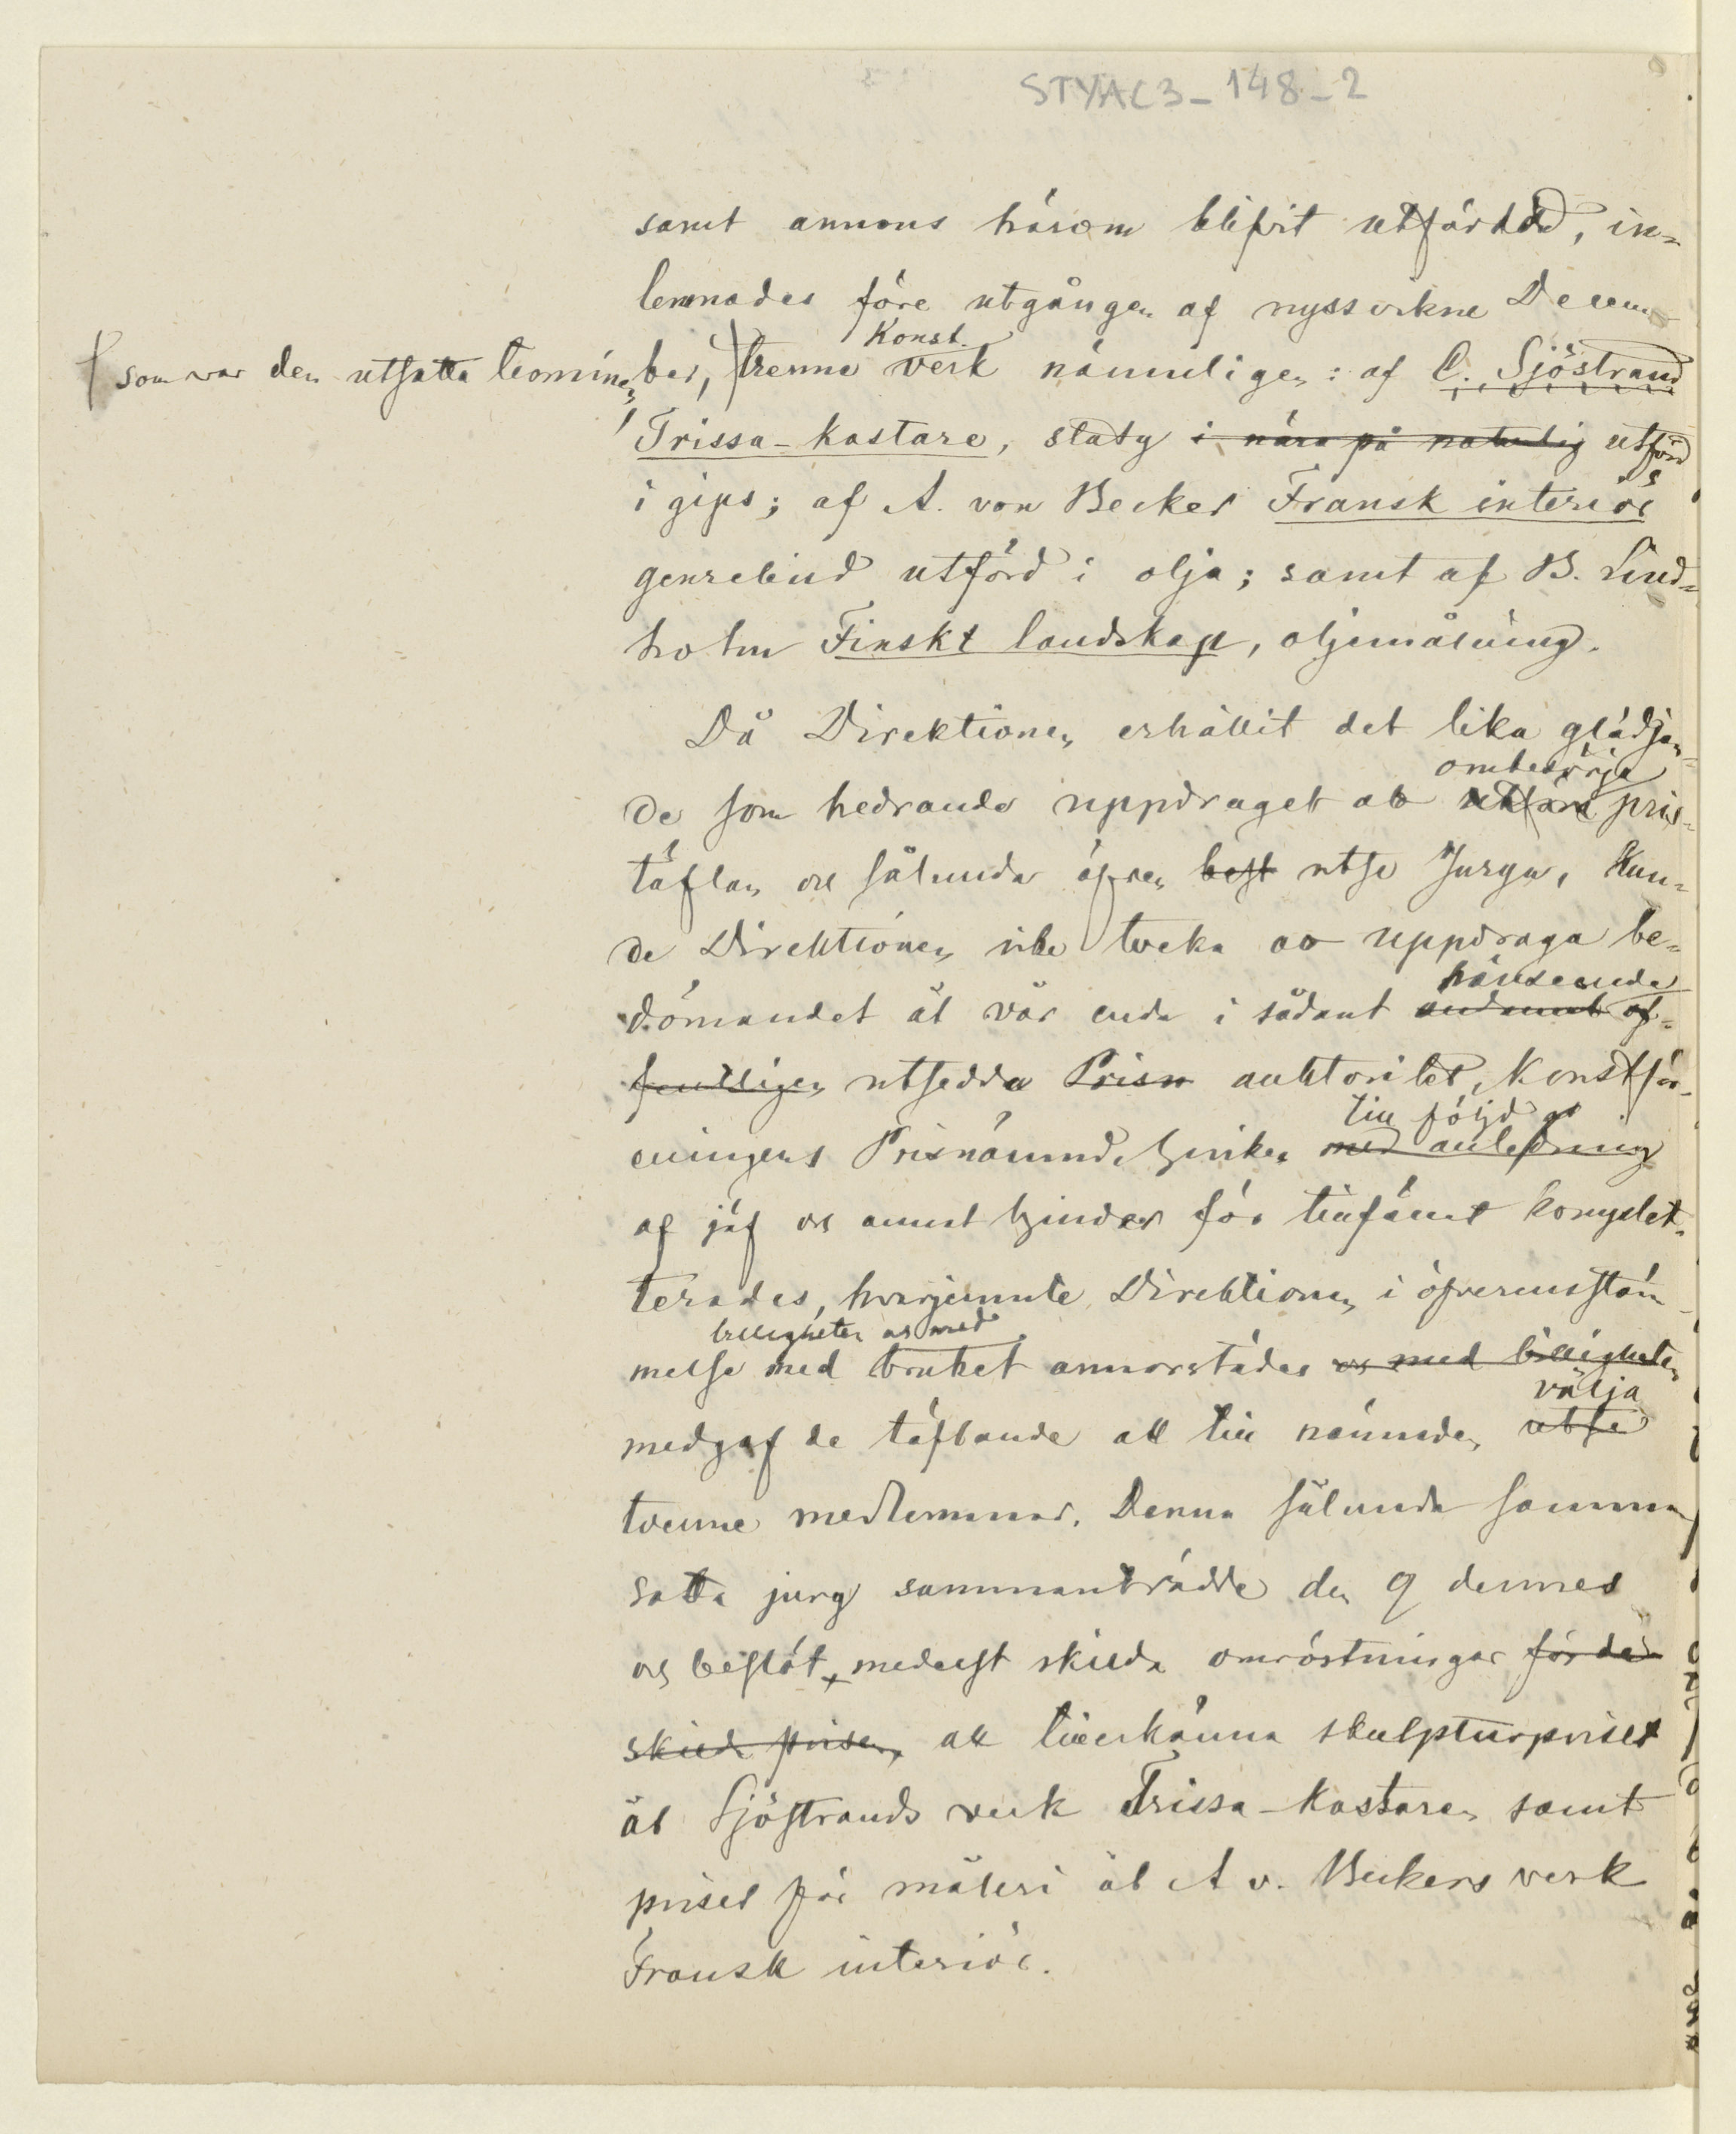 STYAC3_148_2
samt annons härom blifvit utfärdad, in-
lemnades före utgången af nyssvikne Decem-
Konst.
som var den utsatta terminen,
ber, trenne verk nämnligen: af C. Sjöstrand
Trissa-kastare, staty i nära på naturlig utförd
i gips; af A. von Becker Fransk interiör
genrebild utförd i olja; samt af B. Lind-
holm Finskt landskap, oljemålning.
Då Direktionen erhållit det lika glädjan-
ombesörja
de som hedrande uppdraget att utföra pris-
täflan och sålunda äfven best utse Juryn, kun-
de Direktionen icke tveka att uppdraga be-
hänseende
dömandet åt vår enda i sådant ändamål of-
fentligen utsedda Prisn auktoritet, Konstför-
till följd af
eningens Prisnämnd, hvilken med anledning
af jäf och annat hinder för tillfället komplet-
terades, hvarjemnte Direktionen i öfverensstäm-
billigheten och med
melse med bruket annorstädes och med billigheten
välja
medgaf de täflande att till nämnden utse
tvenne medlemmar. Denna sålunda samman
satta jury sammanträdde den 9 dennes
och beslöt, medelst skilda omröstningar för de
skilda prisen, att tillerkänna skulpturpriset
åt Sjöstrands verk Trissa-Kastaren samt
priset för måleri åt A v. Beckers verk
Fransk interiör.